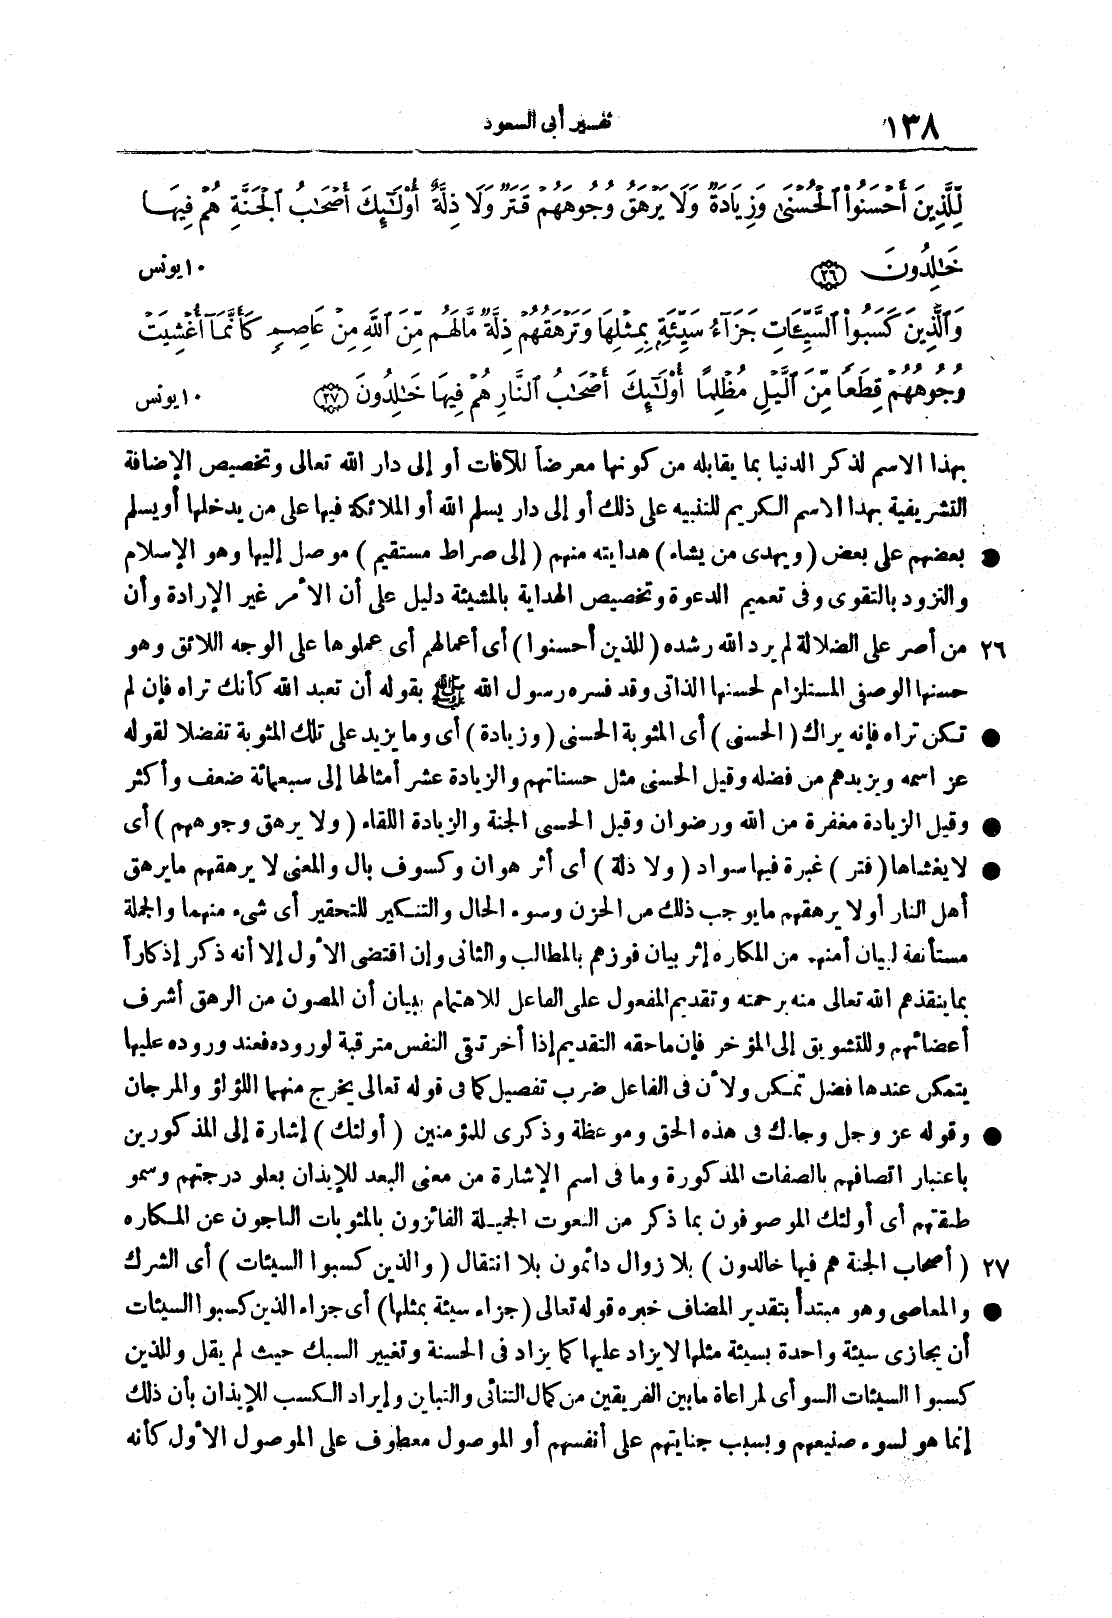 ١٣٨ تفسير أبى السعود
لِّلَّذِينَ أَحْسَنُوا۟ ٱلْحُسْنَىٰ وَزِيَادَةٌ وَلَا يَرْهَقُ وُجُوهَهُمْ قَتَرٌ وَلَا ذِلَّةٌ أُو۟لَـٰٓئِكَ أَصْحَـٰبُ ٱلْجَنَّةِ هُمْ فِيهَا
خَـٰلِدُونَ ﴿٢٦﴾ ١٠ يونس
وَٱلَّذِينَ كَسَبُوا۟ ٱلسَّيِّـَٔاتِ جَزَآءُ سَيِّئَةٍۭ بِمِثْلِهَا وَتَرْهَقُهُمْ ذِلَّةٌ مَّا لَهُم مِّنَ ٱللَّهِ مِنْ عَاصِمٍۢ كَأَنَّمَآ أُغْشِيَتْ
وُجُوهُهُمْ قِطَعًا مِّنَ ٱلَّيْلِ مُظْلِمًا أُو۟لَـٰٓئِكَ أَصْحَـٰبُ ٱلنَّارِ هُمْ فِيهَا خَـٰلِدُونَ ﴿٢٧﴾ ١٠ يونس
بهذا الاسم لذكر الدنيا بما يقابله من كونها معرضاً للآفات أو إلى دار الله تعالى وتخصيص الإضافة
التشريفية بهذا الاسم الكريم للتنبيه على ذلك أو إلى دار يسلم الله أو الملائكة فيها على من يدخلها أو يسلم
● بعضهم على بعض ( ويهدى من يشاء ) هدايته منهم ( إلى صراط مستقيم ) موصل إليها وهو الإسلام
والتزود بالتقوى وفى تعميم الدعوة وتخصيص الهداية بالمشيئة دليل على أن الأمر غير الإرادة وأن
٢٦ من أصر على الضلالة لم يرد الله رشده ( للذين أحسنوا ) أى أعمالهم أى عملوها على الوجه اللائق وهو
حسنها الوصفى المستلزم لحسنها الذاتى وقد فسره رسول الله ﷺ بقوله أن تعبد الله كأنك تراه فإن لم
● تكن تراه فإنه يراك ( الحسنى ) أى المثوبة الحسنى ( وزيادة ) أى وما يزيد على تلك المثوبة تفضلا لقوله
عز اسمه ويزيدهم من فضله وقيل الحسنى مثل حسناتهم والزيادة عشر أمثالها إلى سبعمائة ضعف وأكثر
● وقيل الزيادة مغفرة من الله ورضوان وقيل الحسنى الجنة والزيادة اللقاء ( ولا يرهق وجوههم ) أى
● لا يغشاها ( قتر ) غبرة فيها سواد ( ولا ذلة ) أى أثر هوان وكسوف بال والمعنى لا يرهقهم ما يرهق
أهل النار أو لا يرهقهم ما يوجب ذلك من الحزن وسوء الحال والتنكير للتحقير أى شىء منهما والجملة
مستأنفة لبيان أمنهم من المكاره إثر بيان فوزهم بالمطالب والثانى وإن اقتضى الأول إلا أنه ذكر إذكاراً
بما ينقذهم الله تعالى منه برحمته وتقديم المفعول على الفاعل للاهتمام ببيان أن المصون من الرهق أشرف
أعضائهم وللتشويق إلى المؤخر فإن ما حقه التقديم إذا أخر تبقى النفس مترقبة لوروده فعند وروده عليها
يتمكن عندها فضل تمكن ولأن فى الفاعل ضرب تفصيل كما فى قوله تعالى يخرج منهما اللؤلؤ والمرجان
● وقوله عز وجل وجاءك فى هذه الحق وموعظة وذكرى للمؤمنين ( أولئك ) إشارة إلى المذكورين
باعتبار اتصافهم بالصفات المذكورة وما فى اسم الإشارة من معنى البعد للإيذان بعلو درجتهم وسمو
طبقتهم أى أولئك الموصوفون بما ذكر من النعوت الجميلة الفائزون بالمثوبات الناجون عن المكاره
٢٧ ( أصحاب الجنة هم فيها خالدون ) بلا زوال دائمون بلا انتقال ( والذين كسبوا السيئات ) أى الشرك
● والمعاصى وهو مبتدأ بتقدير المضاف خبره قوله تعالى ( جزاء سيئة بمثلها ) أى جزاء الذين كسبوا السيئات
أن يجازى سيئة واحدة بسيئة مثلها لا يزاد عليها كما يزاد فى الحسنة وتغيير السبك حيث لم يقل وللذين
كسبوا السيئات السوأى لمراعاة ما بين الفريقين من كمال التنائى والتباين وإيراد الكسب للإيذان بأن ذلك
إنما هو لسوء صنيعهم وبسبب جنايتهم على أنفسهم أو الموصول معطوف على الموصول الأول كأنه